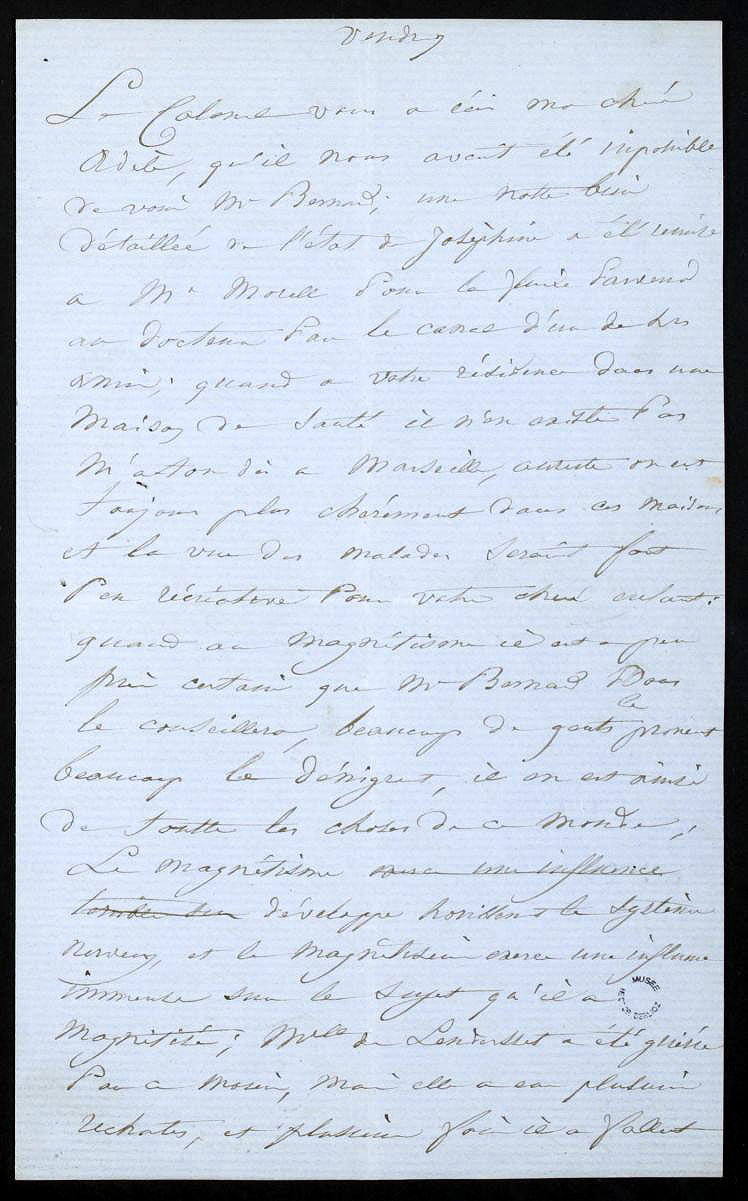 Vendry
Le Colonel vous a écri ma chère
Adèle, qu'il nous avait été impossible
de voir Mr Bernard; une notte bien
détaillée de l'état de Joséphine a été remise
a Mr Morell Pour la faire Parvenir
au docteur Par le canal d'un de ses
amis; quand a votre résidence dans une
Maison de Santé il n'en existe Pas
M'a-t-on dit a Marseille, on est
toujours plus chérement dans ces maisons
et la vue des malades serait fort
Peu récréative Pour votre chère enfant.
quand au magnétisme il est a peu
près certain que Mr Bernard Vous
le
le conseillera, beaucoup de gents pronent
beaucoup le dénigrent, il en est ainsi
de toutte les choses de ce monde;
Le magnétisme exerce une influence
développe le système
nerveux, et le magnétiseur exerce une influence
immense sur le sujet qu'il a
magnétisé; Melle de a été guérie
Par ce moyen, mais elle a eu plusieurs
rechutes, et plusieurs fois il a fallut
MUSÉE
HECTOR BERLIOZ